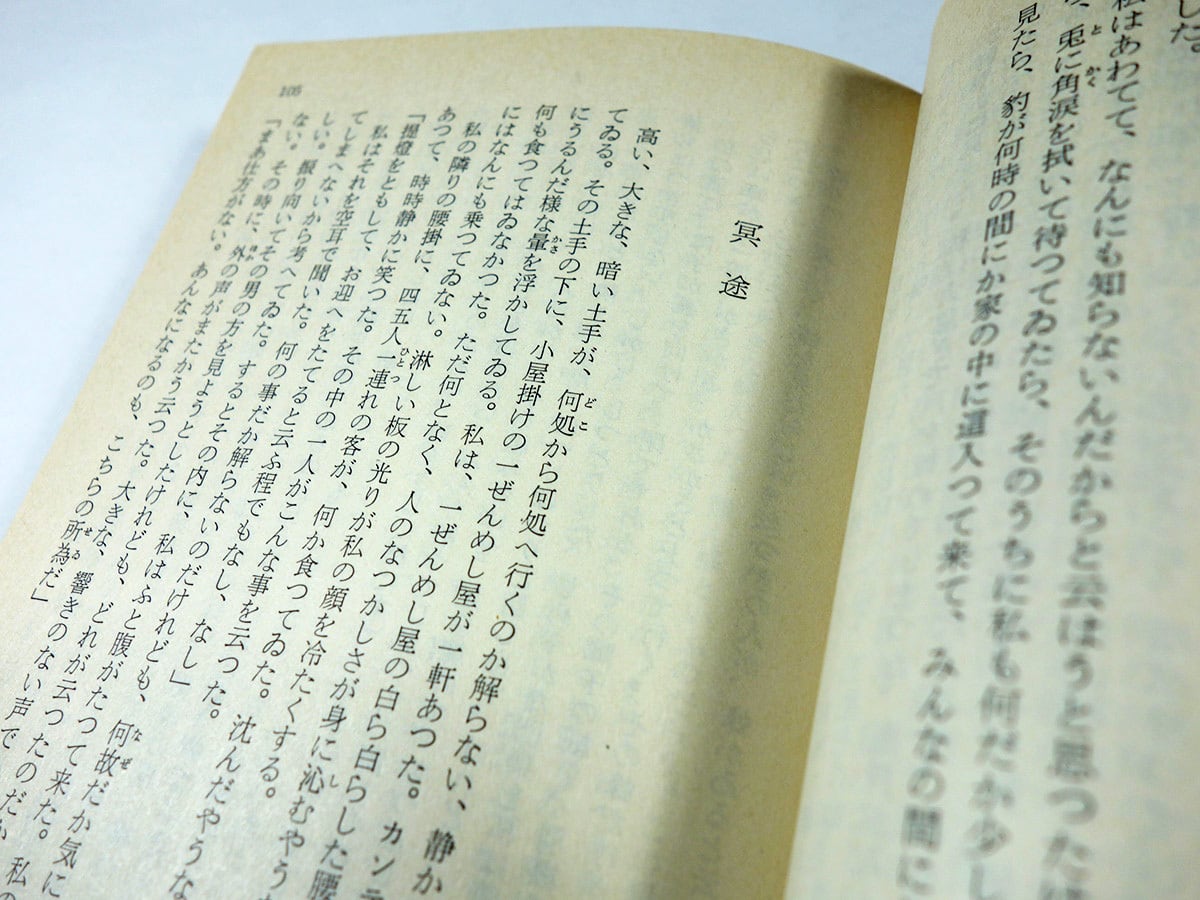 した。
私はあわてて、なんにも知らないんだからと云はうと思つた
ら、兎に角涙を拭いて待つてゐたら、そのうちに私も何だか少し
見たら、豹が何時の間にか家の中に這入つて来て、みんなの間に
105
冥途
高い、大きな、暗い土手が、何処から何処へ行くのか解らない、静か
てゐる。その土手の下に、小屋掛けの一ぜんめし屋が一軒あつた。カンテ
にうるんだ様な暈を浮かしてゐる。私は、一ぜんめし屋の白ら白らした腰
何も食つてはゐなかつた。ただ何となく、人のなつかしさが身に沁むやう
にはなんにも乗つてゐない。淋しい板の光りが私の顔を冷たくする。
私の隣りの腰掛に、四五人一連れの客が、何か食つてゐた。沈んだやうな
あつて、時時静かに笑つた。その中の一人がこんな事を云つた。
「提燈をともして、お迎へをたてると云ふ程でもなし、なし」
私はそれを空耳で聞いた。何の事だか解らないのだけれども、何故だか気に
てしまへないから考へてゐた。するとその内に、私はふと腹がたつて来た。
しい。振り向いてその男の方を見ようとしたけれども、どれが云つたのだか
ない。その時に、外の声がまたかう云つた。大きな、響きのない声で
「まあ仕方がない。あんなになるのも、こちらの所為だ」